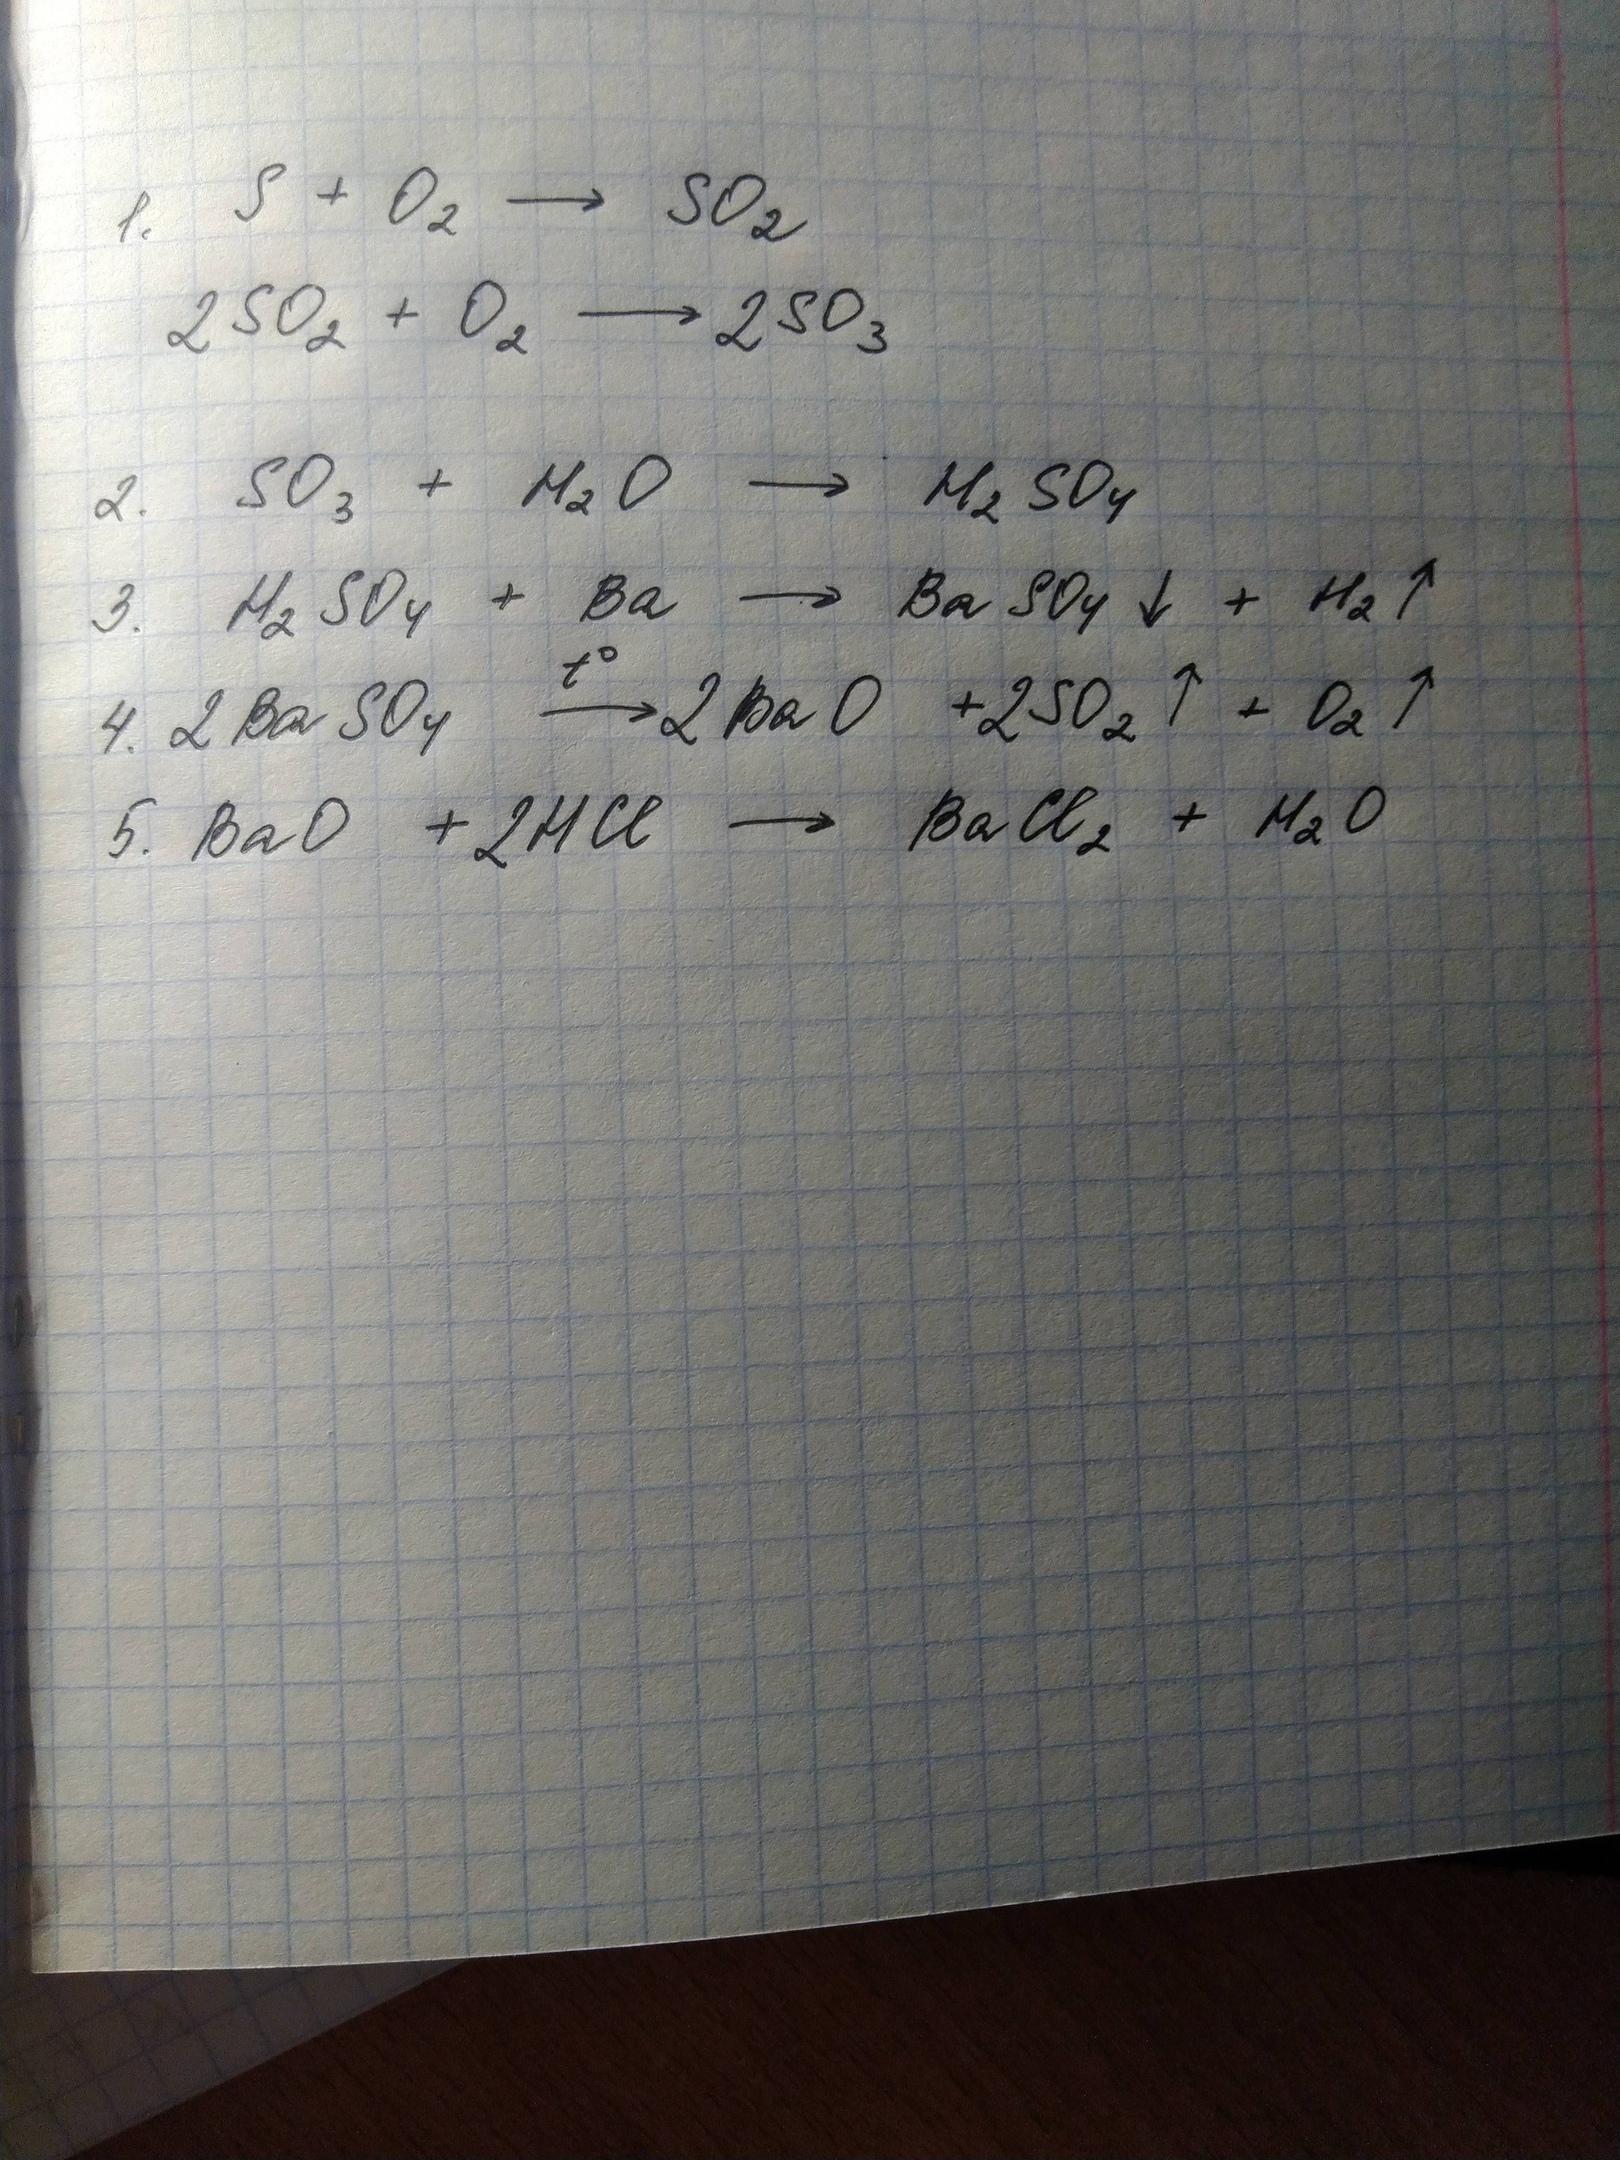 1. S + O₂ → SO₂
2SO₂ + O₂ → 2SO₃
2. SO₃ + H₂O → H₂SO₄
3. H₂SO₄ + Ba → BaSO₄↓ + H₂↑
4. 2BaSO₄ t°→ 2BaO + 2SO₂↑ + O₂↑
5. BaO + 2HCl → BaCl₂ + H₂O